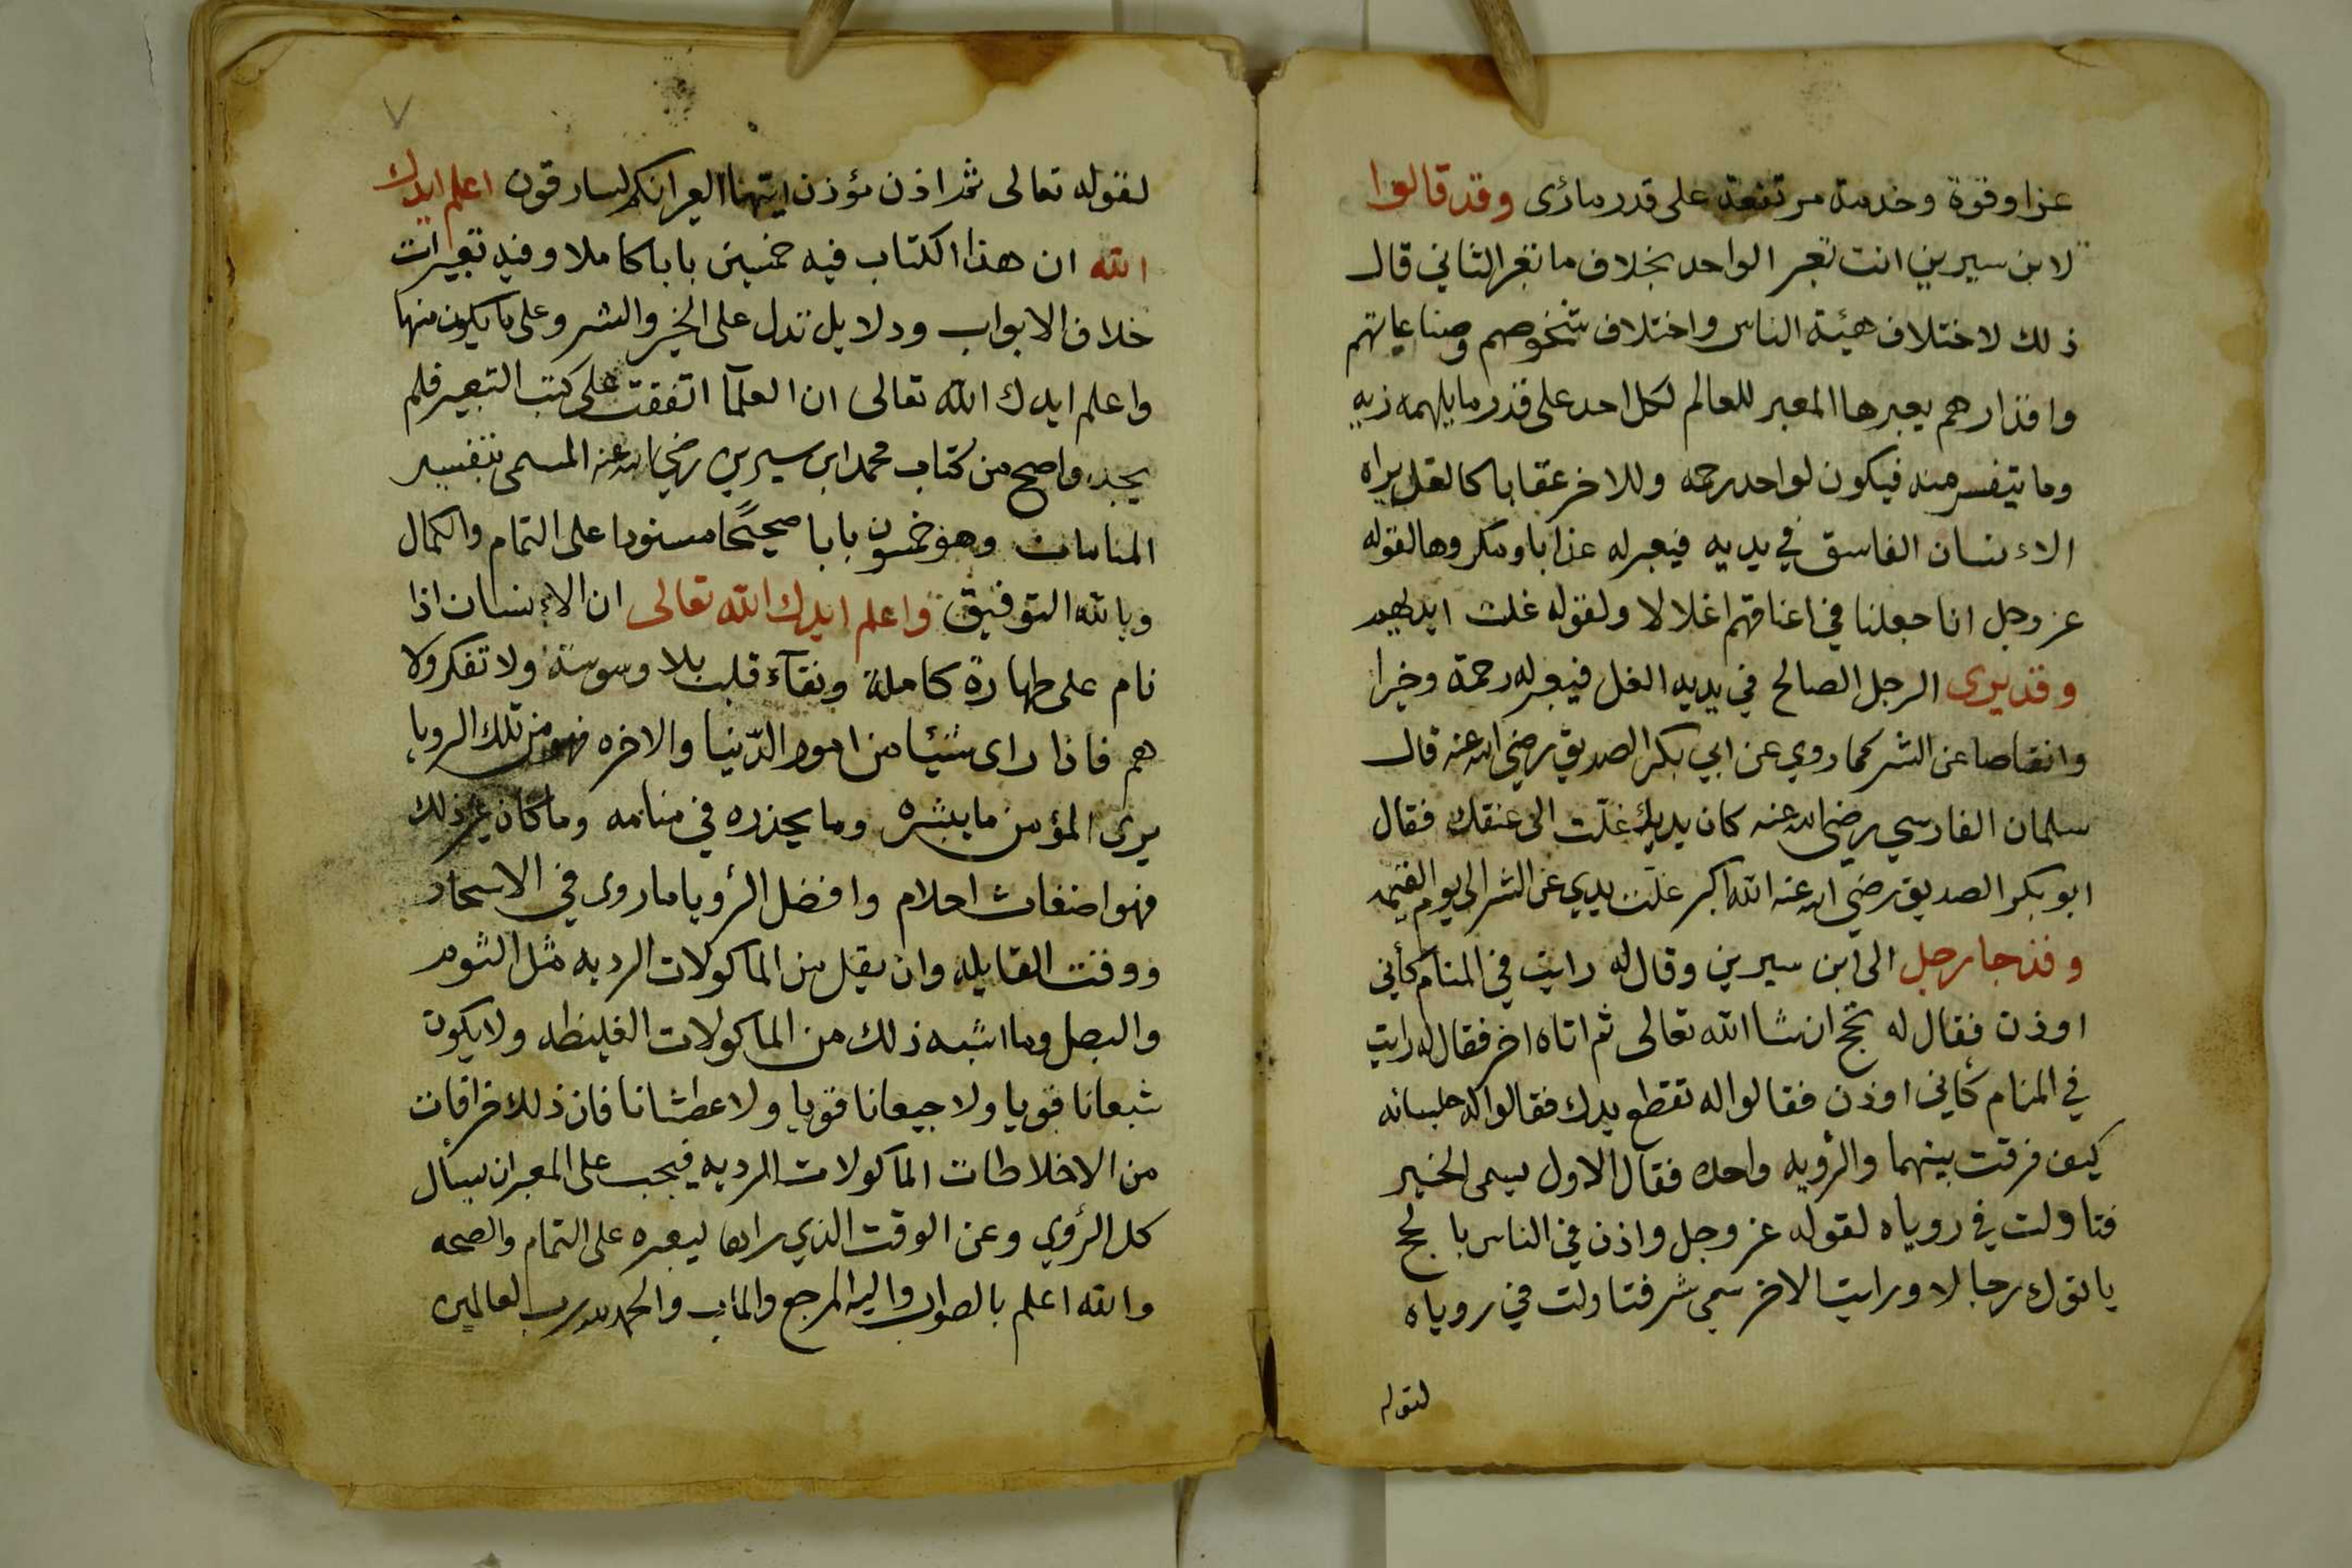 عزا وقوة وخدمة مرتفعة على قدر ما رُئى وقد قالوا
لابن سيرين انت تعبر الواحد بخلاف ما تعبر الثاني قال
ذلك لاختلاف هيئة الناس واختلاف شخوصهم وصناعاتهم
واقدارهم يعبرها المعبر للعالم لكل احد على قدر ما يلهمه ربه
وما يتفسر منه فيكون لواحد رحمه وللاخر عقابا كالغل يراه
الاءنسان الفاسق في يديه فيعبر له عذابا ومكروها لقوله
عز وجل انا جعلنا في اعناقهم اغلالا ولقوله غلت ايديهم
وقد يرى الرجل الصالح في يديه الغل فيعبر له رحمة وخيرا
وانقاصا عن الشر كما روي عن ابي بكر الصديق رضي الله عنه قال
سلمان الفارسي رضي الله عنه كان يديك غلّت الى عنقك فقال
ابو بكر الصديق رضي الله عنه الله اكبر غلّت يدي عن الشر الى يوم القيمه
وقد جا رجل الى ابن سيرين وقال له رايت في المنام كأني
اوذن فقال له تحج ان شا الله تعالى ثم اتاه اخر فقال له رايت
في المنام كأني اوذن فقالوا له تقطع يدك فقالوا له جلسانه
كيف فرقت بينهما والرؤيه واحده فقال الاول يسمى الخير
فتاولت في روياه لقوله عز وجل واذن في الناس بالحج
ياتوك رجالا ورايت الاخر سمى شر فتاولت في روياه
لقوله
٧
لقوله تعالى ثم اذن مؤذن ايتها العير انكم لسارقون اعلم ايدك
الله ان هذا الكتاب فيه خمسين بابا كاملا وفيه تعبيرات
خلاف الابواب ودلايل تدل على الخير والشر وعلى ما يكون منها
واعلم ايدك الله تعالى ان العلمآ اتفقت على كتب التعبير فلم
يجدوا صح من كتاب محمد ابن سيرين رضي الله عنه المسمى بتفسير
المنامات وهو خمسون بابا صحيحًا مسنودا على التمام والكمال
وبالله التوفيق واعلم ايدك الله تعالى ان الاءنسان اذا
نام على طهارة كاملة ونقآء قلب بلا وسوسة ولا تفكر ولا
هم فاذا راى شيئا من امور الدّنيا والاخره فهو من تلك الرويا
يرى المؤمن ما يبشره وما يحذره في منامه وما كان غير ذلك
فهو اضغاث احلام وافضل الرؤيا ما روى في الاسحار
ووقت القايله وان يقيل من الماكولات الرديه مثل الثوم
والبصل وما اشبه ذلك من الماكولات الغليظه ولا يكون
شبعانا قويا ولا جيعانا قويا ولا عطشانا فان ذلك خرافات
من الاخلاطات الماكولات الرديه فيجب على المعبر ان يسأل
كل الرؤي وعن الوقت الذي راها ليعبره على التمام والصحه
والله اعلم بالصواب واليه المرجع والماب والحمد لله رب العالمين